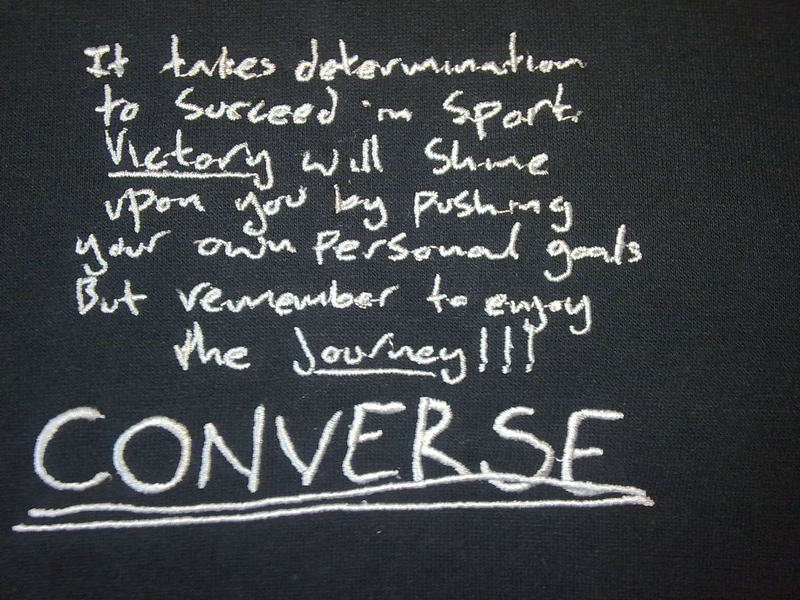 It takes determination
to Succeed in Sport.
Victory will Shine
upon you by pushing
your own Personal goals
But remember to enjoy
the Journey!!!
CONVERSE